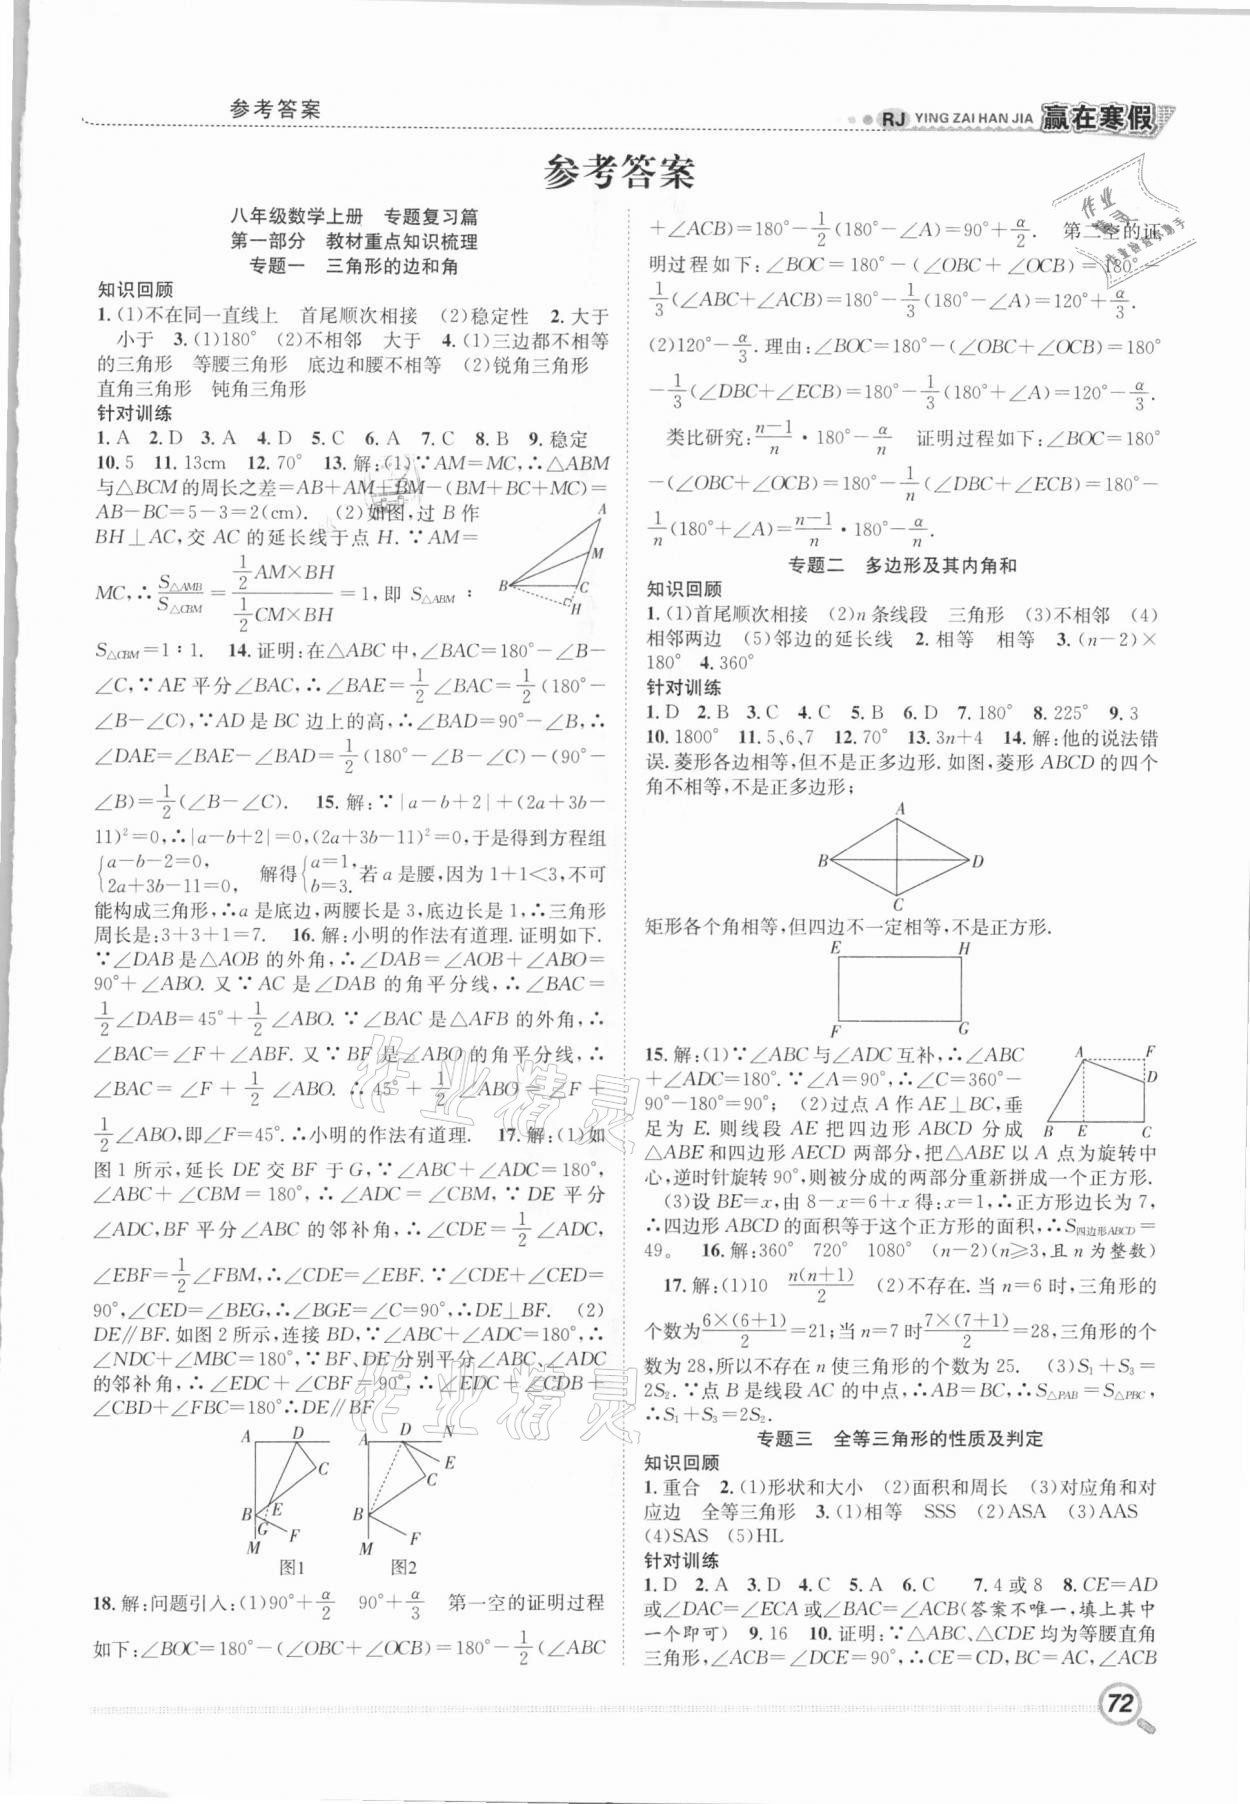 参考答案
RJ YING ZAI HAN JIA 赢在寒假
参考答案
八年级数学上册　专题复习篇
第一部分　教材重点知识梳理
专题一　三角形的边和角
知识回顾
1.(1)不在同一直线上　首尾顺次相接　(2)稳定性　2.大于
小于　3.(1)180°　(2)不相邻　大于　4.(1)三边都不相等
的三角形　等腰三角形　底边和腰不相等　(2)锐角三角形
直角三角形　钝角三角形
针对训练
1.A　2.D　3.A　4.D　5.C　6.A　7.C　8.B　9.稳定
10.5　11.13cm　12.70°　13.解:(1)∵AM=MC,∴△ABM
与△BCM的周长之差=AB+AM+BM-(BM+BC+MC)=
AB-BC=5-3=2(cm).　(2)如图,过B作
BH⊥AC,交AC的延长线于点H.∵AM=
MC,∴S△AMB/S△CBM=(1/2 AM×BH)/(1/2 CM×BH)=1,即S△ABM:
A
M
B
C
H
S△CBM=1:1.　14.证明:在△ABC中,∠BAC=180°-∠B-
∠C,∵AE平分∠BAC,∴∠BAE=1/2∠BAC=1/2(180°-
∠B-∠C),∵AD是BC边上的高,∴∠BAD=90°-∠B,∴
∠DAE=∠BAE-∠BAD=1/2(180°-∠B-∠C)-(90°-
∠B)=1/2(∠B-∠C).　15.解:∵|a-b+2|+(2a+3b-
11)²=0,∴|a-b+2|=0,(2a+3b-11)²=0,于是得到方程组
{a-b-2=0, 2a+3b-11=0,　解得{a=1, b=3.若a是腰,因为1+1<3,不可
能构成三角形,∴a是底边,两腰长是3,底边长是1,∴三角形
周长是:3+3+1=7.　16.解:小明的作法有道理.证明如下.
∵∠DAB是△AOB的外角,∴∠DAB=∠AOB+∠ABO=
90°+∠ABO.又∵AC是∠DAB的角平分线,∴∠BAC=
1/2∠DAB=45°+1/2∠ABO.∵∠BAC是△AFB的外角,∴
∠BAC=∠F+∠ABF.又∵BF是∠ABO的角平分线,∴
∠BAC=∠F+1/2∠ABO.∴45°+1/2∠ABO=∠F+
1/2∠ABO,即∠F=45°.∴小明的作法有道理.　17.解:(1)如
图1所示,延长DE交BF于G,∵∠ABC+∠ADC=180°,
∠ABC+∠CBM=180°,∴∠ADC=∠CBM,∵DE平分
∠ADC,BF平分∠ABC的邻补角,∴∠CDE=1/2∠ADC,
∠EBF=1/2∠FBM,∴∠CDE=∠EBF.∵∠CDE+∠CED=
90°,∠CED=∠BEG,∴∠BGE=∠C=90°,∴DE⊥BF.　(2)
DE∥BF.如图2所示,连接BD,∵∠ABC+∠ADC=180°,∴
∠NDC+∠MBC=180°,∵BF、DE分别平分∠ABC、∠ADC
的邻补角,∴∠EDC+∠CBF=90°,∴∠EDC+∠CDB+
∠CBD+∠FBC=180°∴DE∥BF
A D C B E G F M
图1
A D N E C B F M
图2
18.解:问题引入:(1)90°+α/2　90°+α/3　第一空的证明过程
如下:∠BOC=180°-(∠OBC+∠OCB)=180°-1/2(∠ABC
+∠ACB)=180°-1/2(180°-∠A)=90°+α/2.　第二空的证
明过程如下:∠BOC=180°-(∠OBC+∠OCB)=180°-
1/3(∠ABC+∠ACB)=180°-1/3(180°-∠A)=120°+α/3.
(2)120°-α/3.理由:∠BOC=180°-(∠OBC+∠OCB)=180°
-1/3(∠DBC+∠ECB)=180°-1/3(180°+∠A)=120°-α/3.
类比研究:n-1/n·180°-α/n　证明过程如下:∠BOC=180°
-(∠OBC+∠OCB)=180°-1/n(∠DBC+∠ECB)=180°-
1/n(180°+∠A)=n-1/n·180°-α/n.
专题二　多边形及其内角和
知识回顾
1.(1)首尾顺次相接　(2)n条线段　三角形　(3)不相邻　(4)
相邻两边　(5)邻边的延长线　2.相等　相等　3.(n-2)×
180°　4.360°
针对训练
1.D　2.B　3.C　4.C　5.B　6.D　7.180°　8.225°　9.3
10.1800°　11.5、6、7　12.70°　13.3n+4　14.解:他的说法错
误.菱形各边相等,但不是正多边形.如图,菱形ABCD的四个
角不相等,不是正多边形;
A
B D
C
矩形各个角相等,但四边不一定相等,不是正方形.
E H
F G
15.解:(1)∵∠ABC与∠ADC互补,∴∠ABC
+∠ADC=180°.∵∠A=90°,∴∠C=360°-
90°-180°=90°;　(2)过点A作AE⊥BC,垂
足为E.则线段AE把四边形ABCD分成
A F
D
B E C
△ABE和四边形AECD两部分,把△ABE以A点为旋转中
心,逆时针旋转90°,则被分成的两部分重新拼成一个正方形.
(3)设BE=x,由8-x=6+x得:x=1,∴正方形边长为7,
∴四边形ABCD的面积等于这个正方形的面积,∴S四边形ABCD=
49。　16.解:360°　720°　1080°　(n-2)(n≥3,且n为整数)
17.解:(1)10　n(n+1)/2　(2)不存在.当n=6时,三角形的
个数为6×(6+1)/2=21;当n=7时7×(7+1)/2=28,三角形的个
数为28,所以不存在n使三角形的个数为25.　(3)S₁+S₃=
2S₂.∵点B是线段AC的中点,∴AB=BC,∴S△PAB=S△PBC,
∴S₁+S₃=2S₂.
专题三　全等三角形的性质及判定
知识回顾
1.重合　2.(1)形状和大小　(2)面积和周长　(3)对应角和对
应边　全等三角形　3.(1)相等　SSS　(2)ASA　(3)AAS
(4)SAS　(5)HL
针对训练
1.D　2.A　3.D　4.C　5.A　6.C　7.4或8　8.CE=AD
或∠DAC=∠ECA或∠BAC=∠ACB(答案不唯一,填上其中
一个即可)　9.16　10.证明:∵△ABC、△CDE均为等腰直角
三角形,∠ACB=∠DCE=90°,∴CE=CD,BC=AC,∠ACB
72
作业精灵
作业精灵